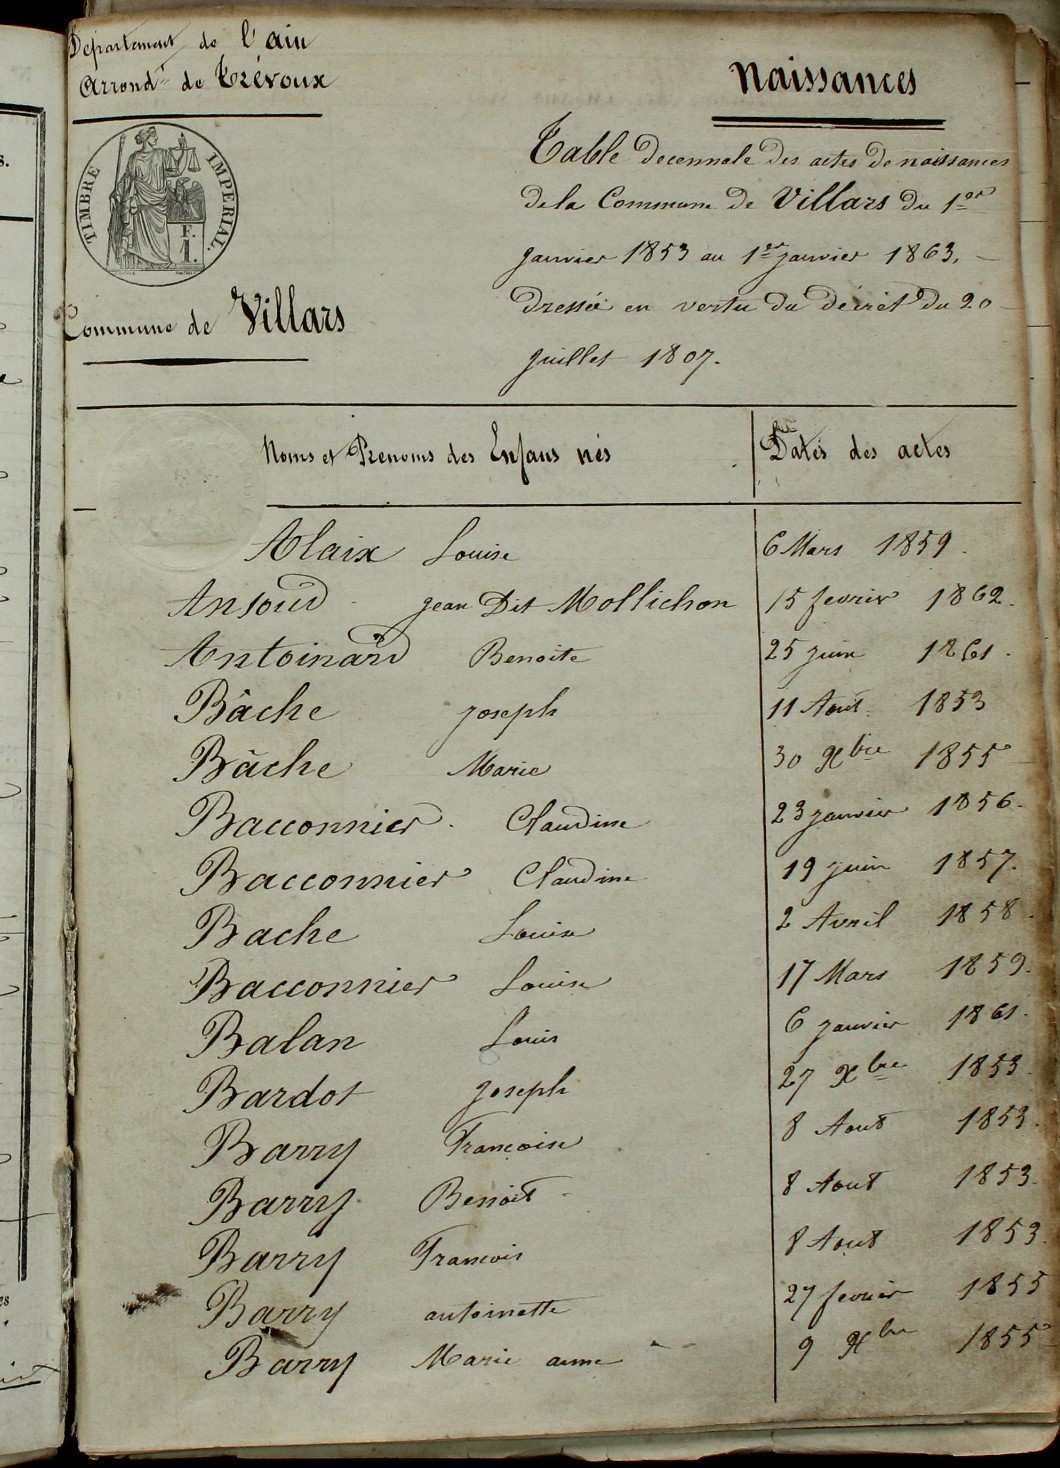 Departement de l'ain
Arrondt de Trévoux
TIMBRE IMPERIAL.
F.
1.
Commune de Villars
Naissances
Table decennale des actes de naissances
de la Commune de Villars du 1er
janvier 1853 au 1er janvier 1863.
dressée en vertu du décrêt du 20
juillet 1807.
Noms et Prenoms des Enfans nés Dates des actes
Alaix Louise 6 Mars 1859.
Ansoud jean Dit Mollichon 15 fevrier 1862.
Antoinard Benoite 25 juin 1861.
Bâche joseph 11 Aout 1853
Bâche Marie 30 Xbre 1855
Bacconnier Claudine 23 janvier 1856.
Bacconnier Claudine 19 juin 1857.
Bache Louise 2 Avril 1858.
Bacconnier Louise 17 Mars 1859.
Balan Louis 6 janvier 1861.
Bardot joseph 27 Xbre 1853.
Barry Françoise 8 Aout 1853.
Barry Benoit 8 Aout 1853.
Barry Francois 8 Aout 1853.
Barry antoinette 27 fevrier 1855
Barry Marie anne 9 Xbre 1855